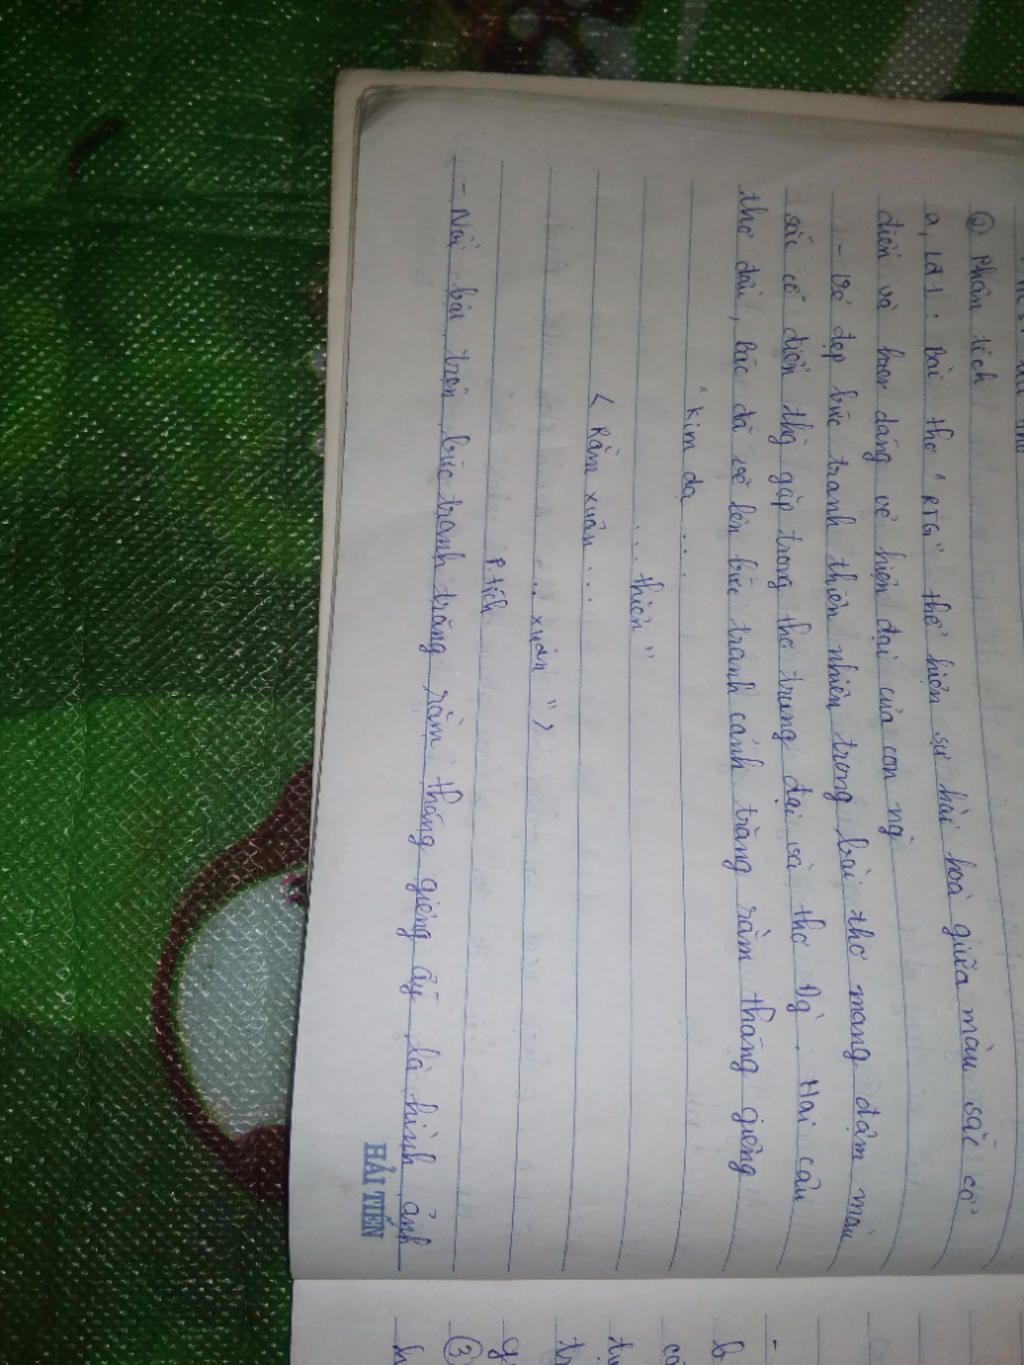 ② Phân tích
a, LĐ1: Bài thơ "RTG" thể hiện sự hài hoà giữa màu sắc cổ
điển và hơn dáng vẻ hiện đại của con ng`
- Vẻ đẹp bức tranh thiên nhiên trong bài thơ mang đậm màu
sắc cổ điển thg gặp trong thơ trung đại và thơ Đg`. Hai câu
thơ đầu, Bác đã vẽ lên bức tranh cảnh trăng rằm tháng giêng
"Kim dạ ...
... thiên"
< Rằm xuân ...
... xuân ">
P.tích
- Nổi bật trên bức tranh trăng rằm tháng giêng ấy là hình ảnh
HẢI TIẾN